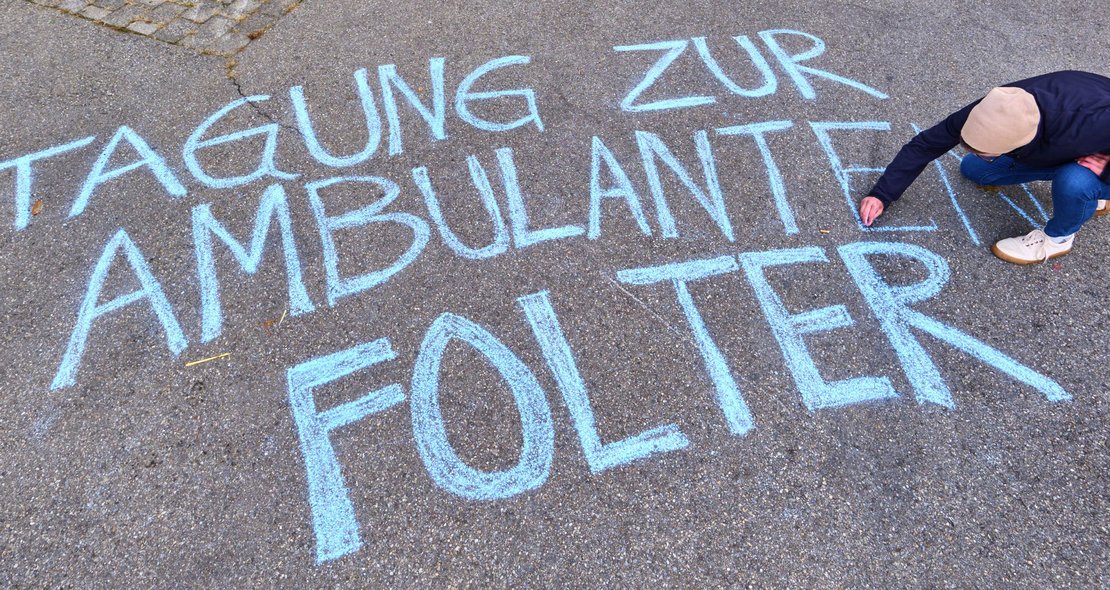 TAGUNG ZUR
AMBULANTEN
FOLTER